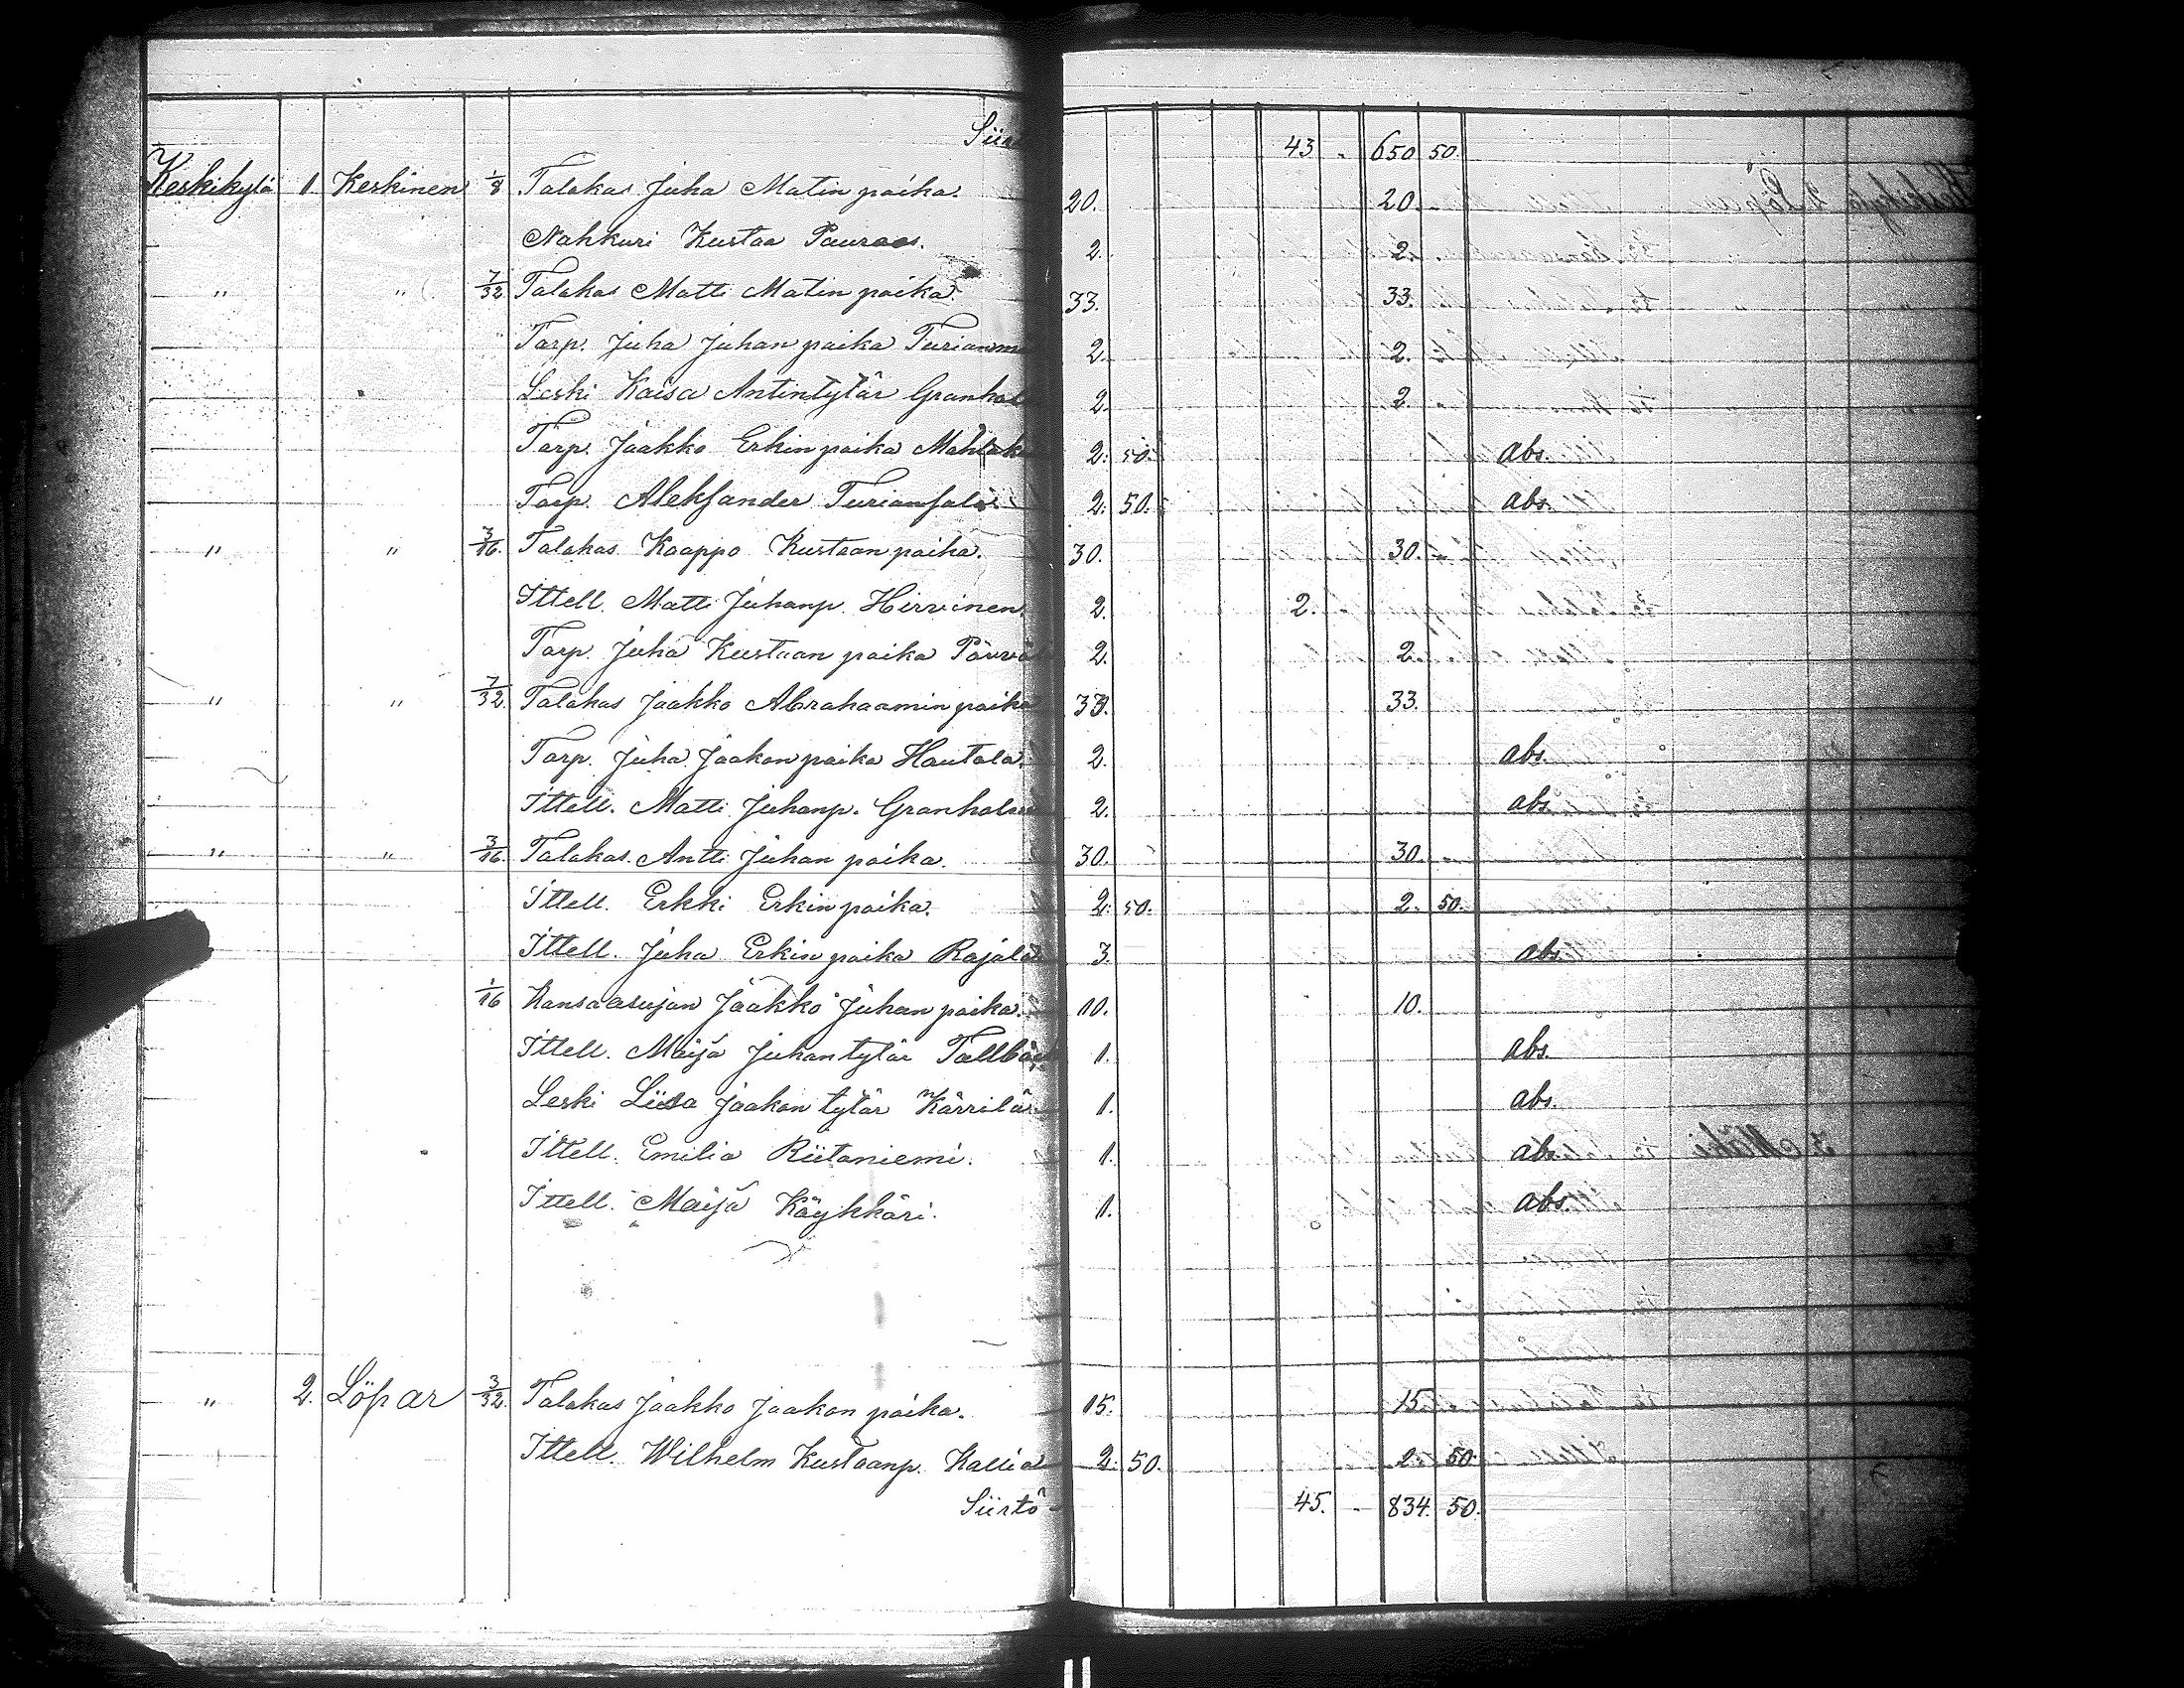 43 - 650 50.
Keskikylä 1. Keskinen 1/8 Talakas Juha Matin poika. 20. 20. -
Nahkuri Kustaa 2. 2. -
" " 7/32 Talakas Matti Matin poika. 33. 33. -
Torp. Juha Juhan poika 2. 2. -
Leski Kaisa Antintytär 2. 2. -
Torp. Jaakko Erkin poika 2. 50. abs.
Torp. Aleksander 2. 50. abs.
" " 3/16. Talakas Kaappo Kustaan poika. 30. 30. -
Ittell. Matti Juhanp. Hirvinen. 2. 2.
Torp. Juha Kustaan poika 2. 2.
" " 7/32. Talakas Jaakko Abrahaamin poika 33. 33.
Torp. Juha Jaakon poika Hautala. 2. abs.
Ittell. Matti Juhanp. 2. abs.
" " 3/16. Talakas Antti Juhan poika. 30. 30. -
Ittell. Erkki Erkin poika. 2. 50. 2. 50.
Ittell. Juha Erkin poika Rajala 3. abs.
1/16 Kansaasujan Jaakko Juhan poika. 10. 10.
Ittell. Maija Juhantytär 1. abs.
Leski Liisa Jaakon tytär Kärrilä 1. abs.
Ittell. Emilia Riitaniemi. 1. abs.
Ittell. Maija Käykkäri. 1. abs.
" 2. Löpar 3/32. Talakas Jaakko Jaakon poika. 15. 15.
Ittell. Wilhelm Kustaanp. Kallio 2. 50. 2. 50.
Siirto 45. - 834. 50.